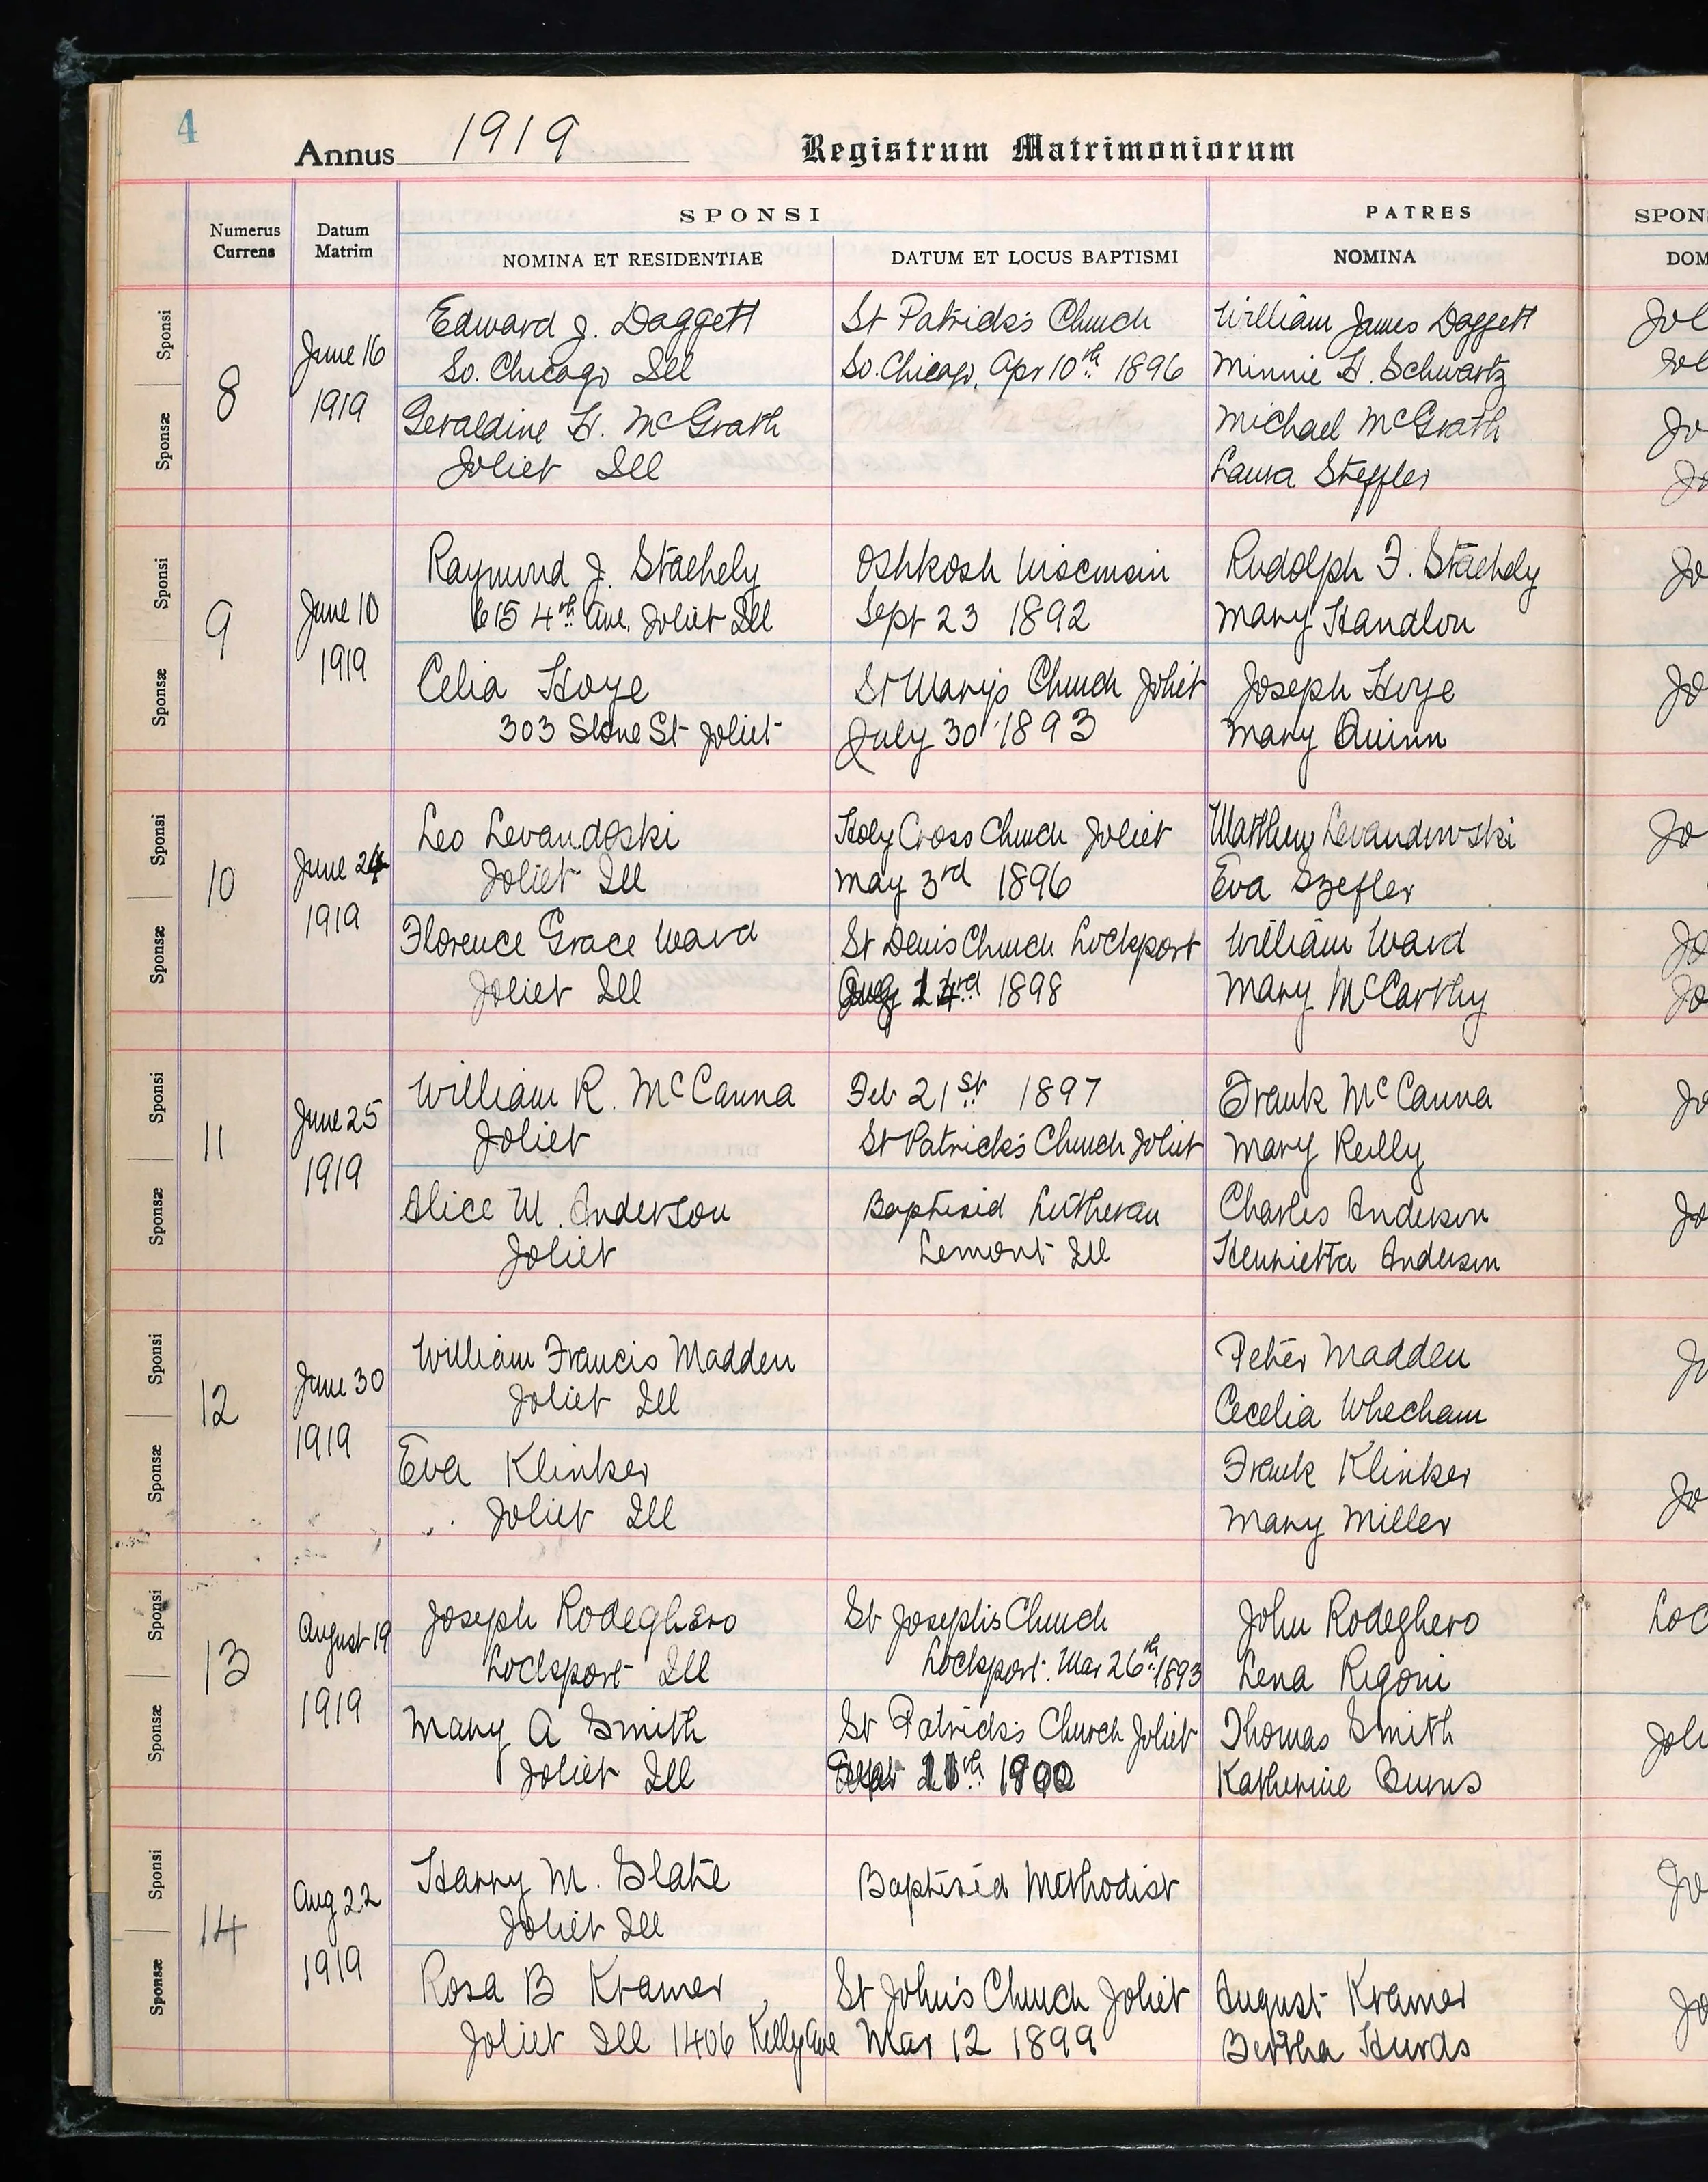 4
Annus 1919 Registrum Matrimoniorum
Numerus Currens
Datum Matrim
SPONSI
NOMINA ET RESIDENTIAE
DATUM ET LOCUS BAPTISMI
PATRES
NOMINA
SPON
DOM
Sponsi
Sponsæ
8
June 16
1919
Edward J. Daggett
So. Chicago Ill
St Patrick's Church
So. Chicago, Apr 10th 1896
William James Daggett
Minnie H. Schwartz
Geraldine H. McGrath
Joliet Ill
Michael McGrath
Laura Steffler
Sponsi
Sponsæ
9
June 10
1919
Raymond J. Staehely
615 4th Ave. Joliet Ill
Oshkosh Wisconsin
Sept 23 1892
Rudolph F. Staehely
Mary Handlon
Celia Hoye
303 Stone St Joliet
St Mary's Church Joliet
July 30 1893
Joseph Hoye
Mary Quinn
Sponsi
Sponsæ
10
June 24
1919
Leo Levandoski
Joliet Ill
Holy Cross Church Joliet
May 3rd 1896
Matthew Levandowski
Eva Szefler
Florence Grace Ward
Joliet Ill
St Denis Church Lockport
Aug 14rd 1898
William Ward
Mary McCarthy
Sponsi
Sponsæ
11
June 25
1919
William R. McCanna
Joliet
Feb 21st 1897
St Patrick's Church Joliet
Frank McCanna
Mary Reilly
Alice M. Anderson
Joliet
Baptised Lutheran
Lemont Ill
Charles Anderson
Henrietta Anderson
Sponsi
Sponsæ
12
June 30
1919
William Francis Madden
Joliet Ill
Peter Madden
Cecelia Whecham
Eva Klinker
Joliet Ill
Frank Klinker
Mary Miller
Sponsi
Sponsæ
13
August 19
1919
Joseph Rodeghero
Lockport Ill
St Joseph's Church
Lockport. Mar 26th 1893
John Rodeghero
Lena Rigoni
Mary A Smith
Joliet Ill
St Patrick's Church Joliet
Sept 1900
Thomas Smith
Katherine Burns
Sponsi
Sponsæ
14
Aug 22
1919
Harry M. Slate
Joliet Ill
Baptised Methodist
Rosa B Kramer
Joliet Ill 1406 Kelly Ave
St John's Church Joliet
Mar 12 1899
August Kramer
Bertha Hurds